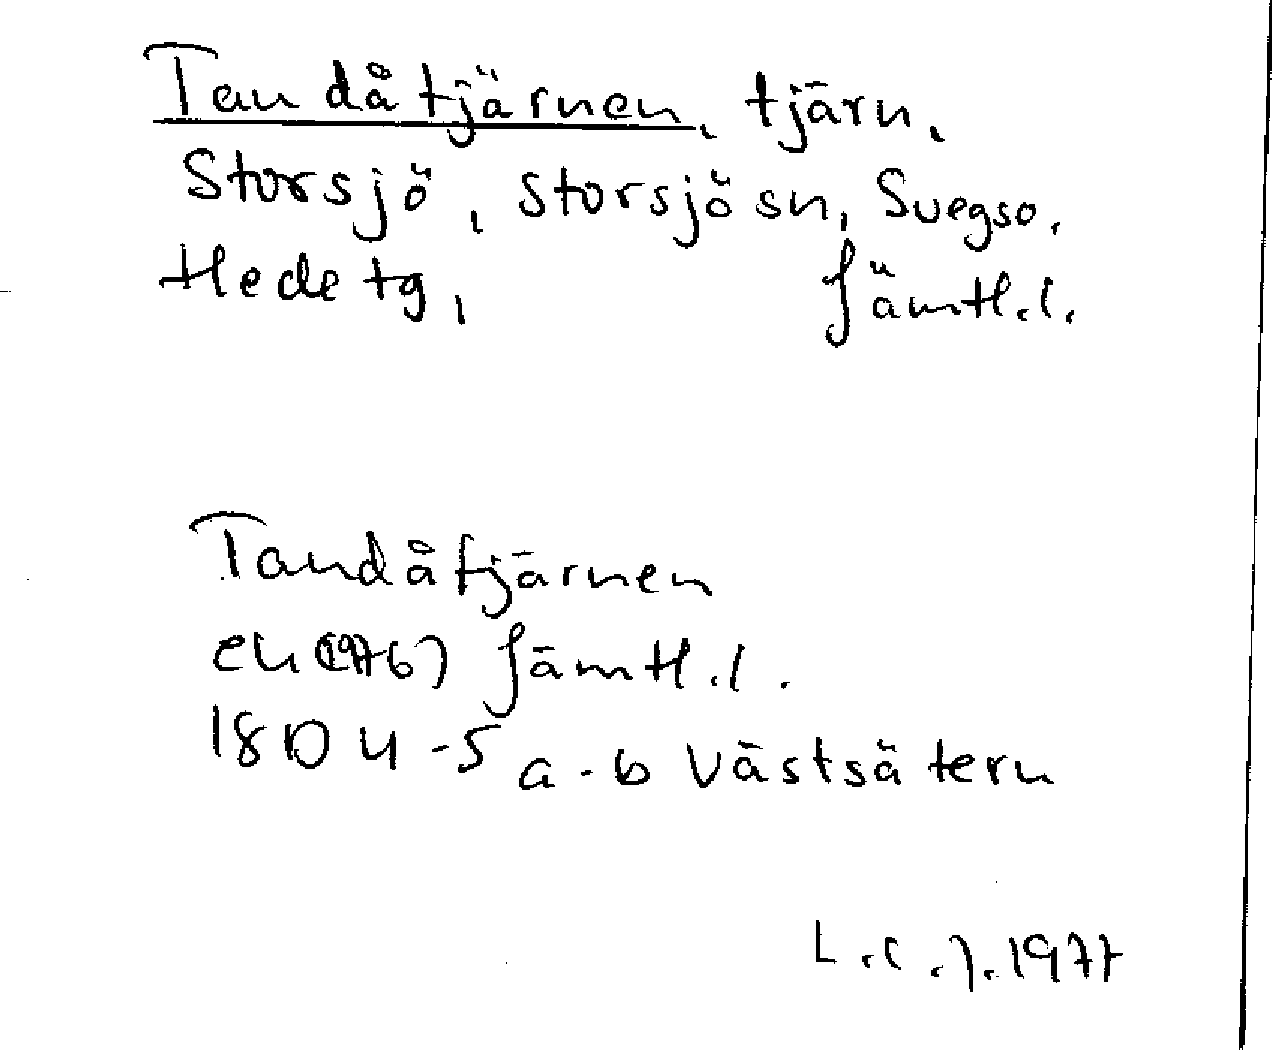 Tandåtjärnen, tjärn,
Storsjö, Storsjö sn, Svegso.
Hede tg, Jämtl.l.
Tandåtjärnen
ek (1976) Jämtl.l.
18D 4-5 a-b Västsätern
L.C.J. 1977